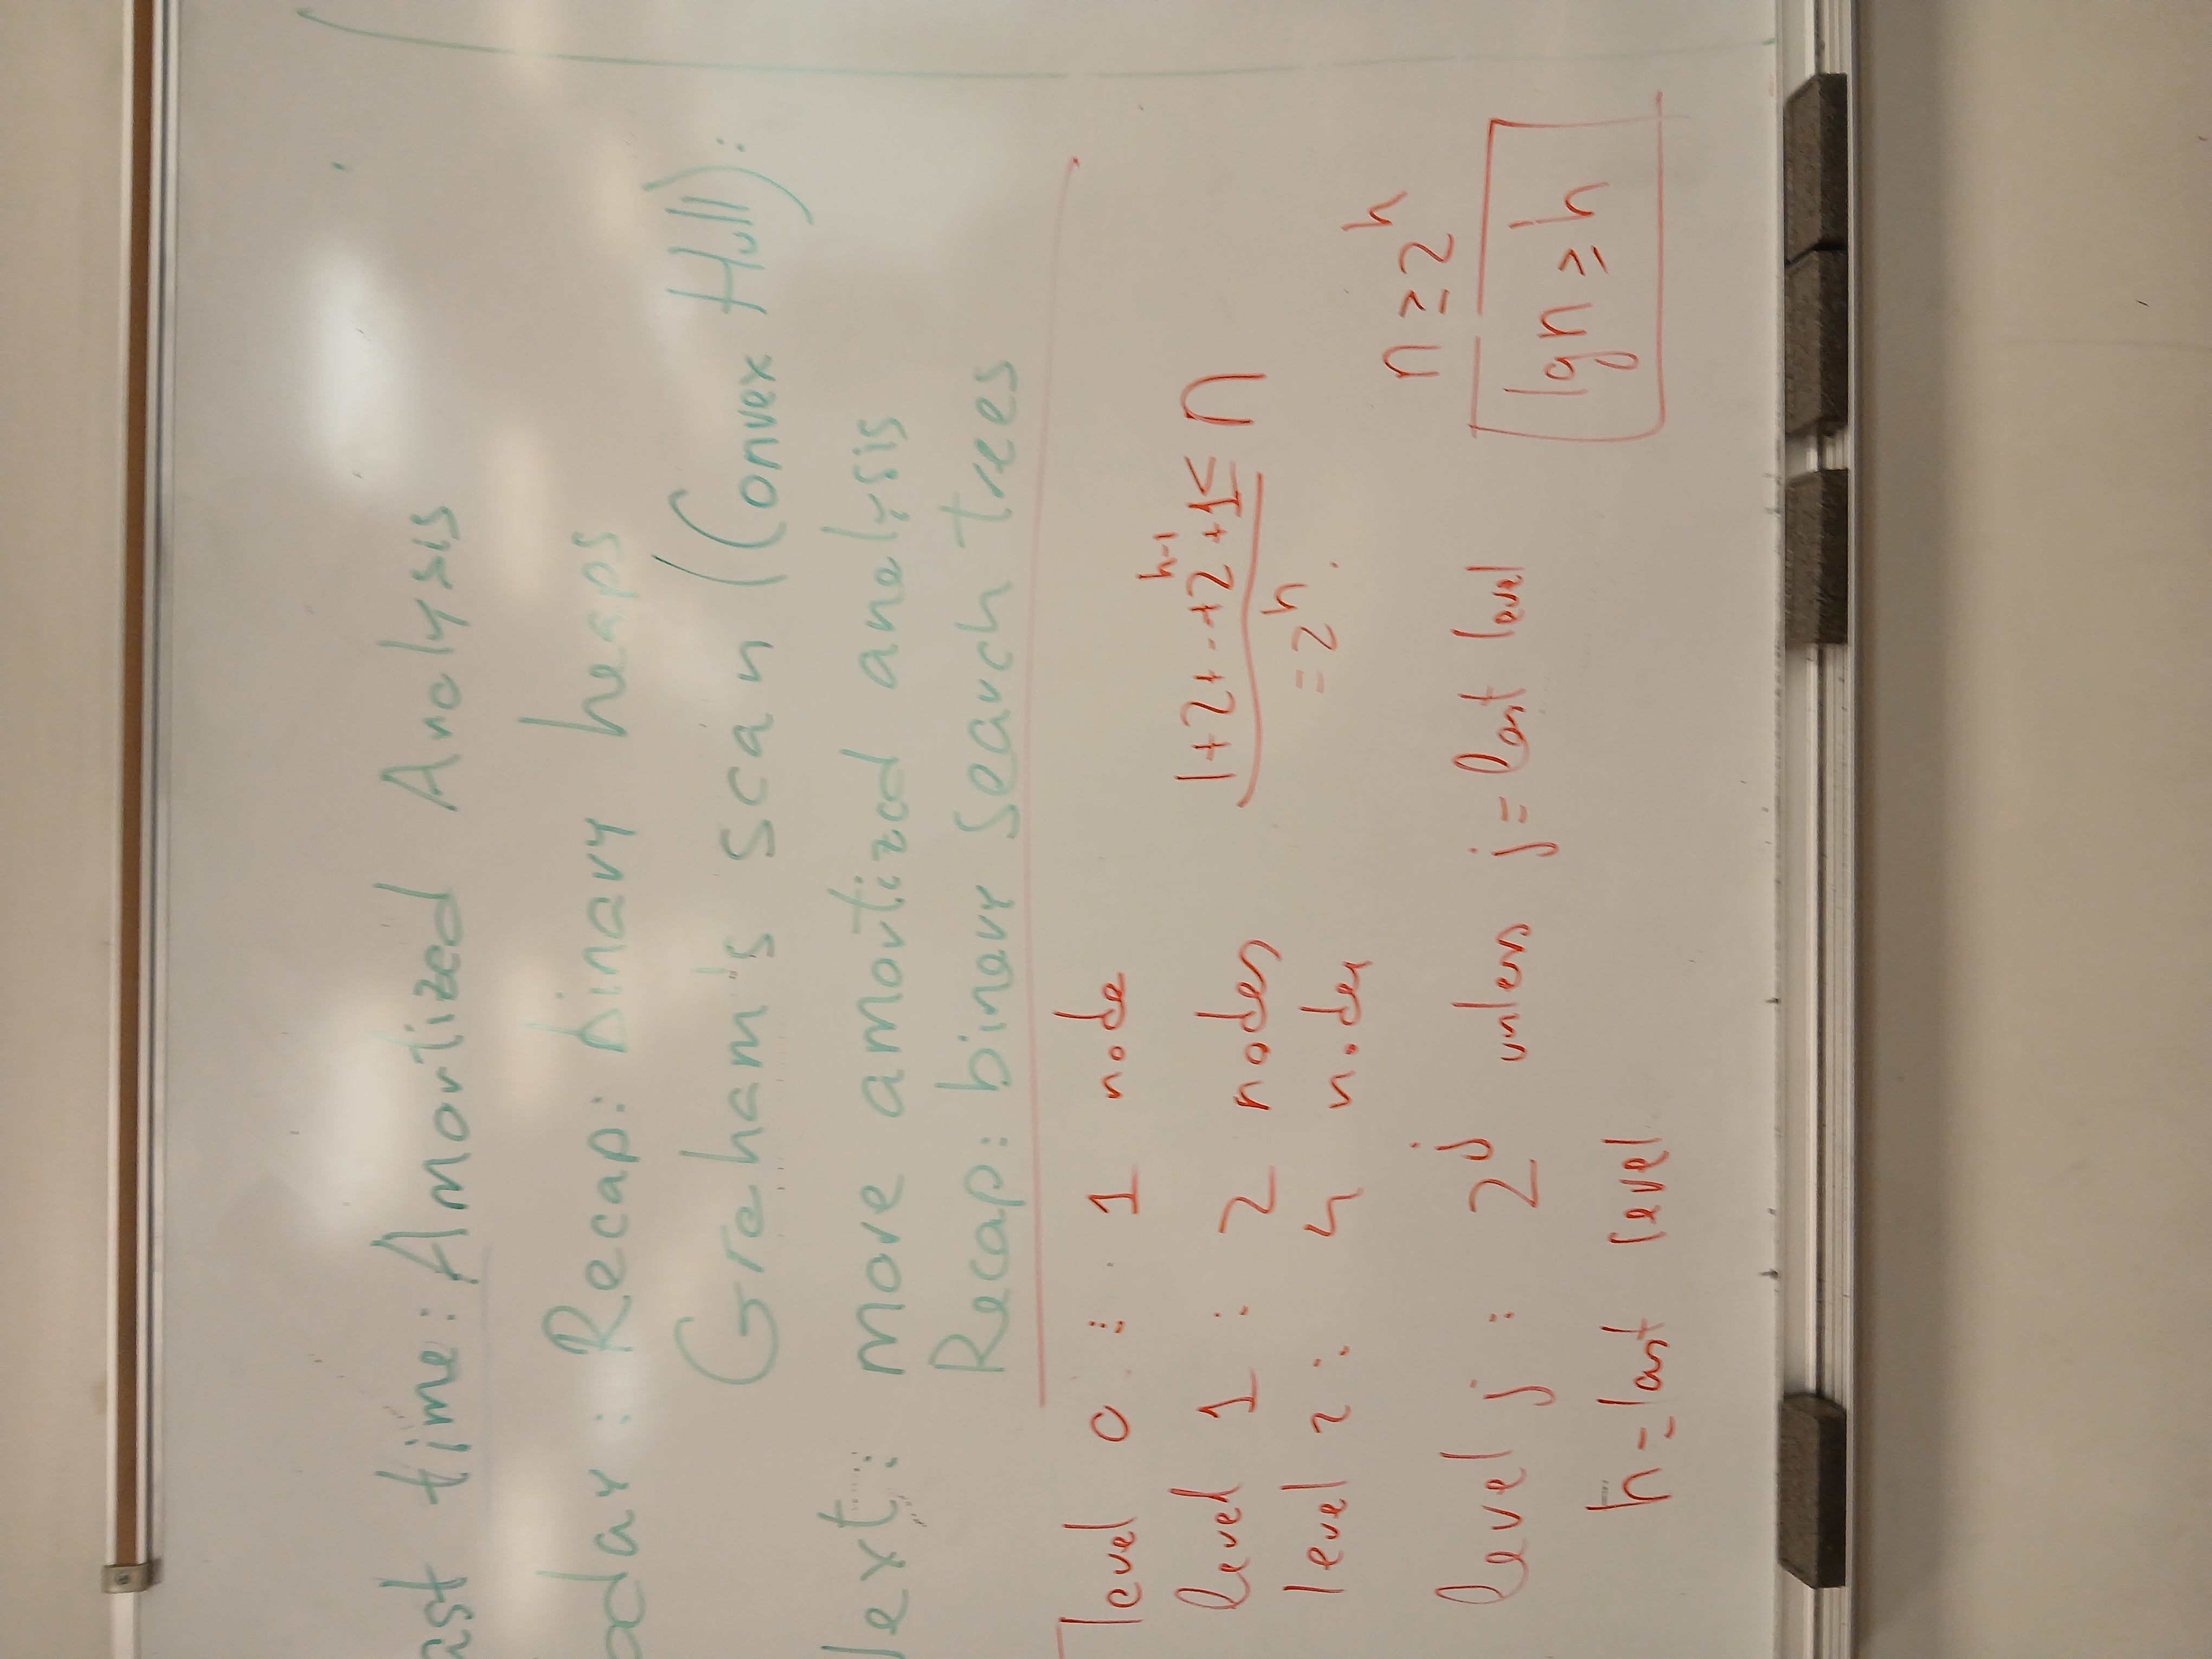 ast time: Amortized Analysis
oday: Recap: binary heaps
Graham's scan (Convex Hull):
Next: more amortized analysis
Recap: binary search trees
level 0 : 1 node
level 1 : 2 nodes
level 2 : 4 nodes
1+2+--+2^{h-1}+1 ≤ n
=2^h.
n ≥ 2^h
level j : 2^j unless j=last level
lgn ≥ h
h=last level